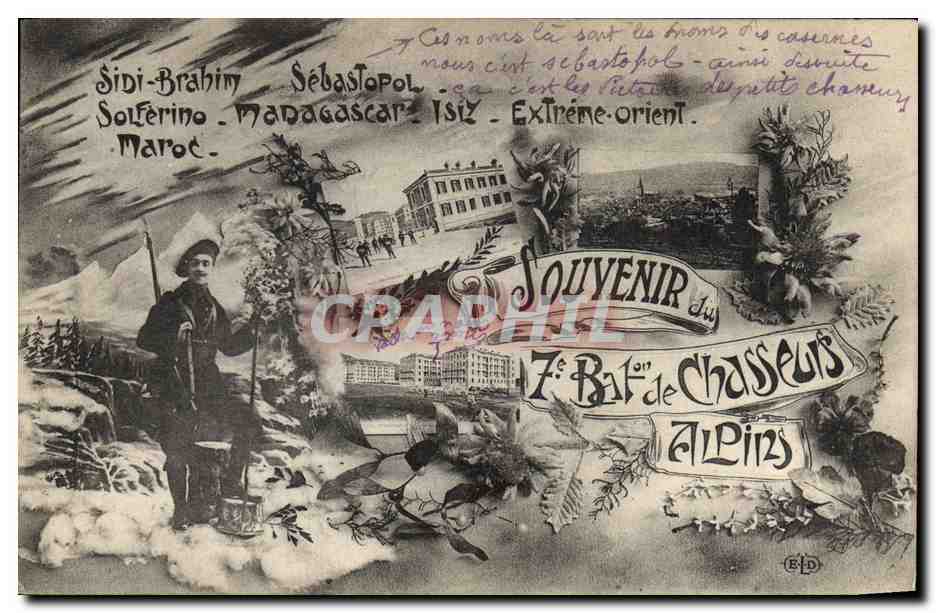 Ces noms là sont les noms des casernes
nous c'est sébastopol - ainsi de suite
ça c'est les des petits chasseurs
Sidi-Brahim Sébastopol -
Solférino - Madagascar - Isly - Extrême-Orient -
Maroc -
Souvenir du
CRAPHIL
7e Baton de Chasseurs
Alpins
ELD